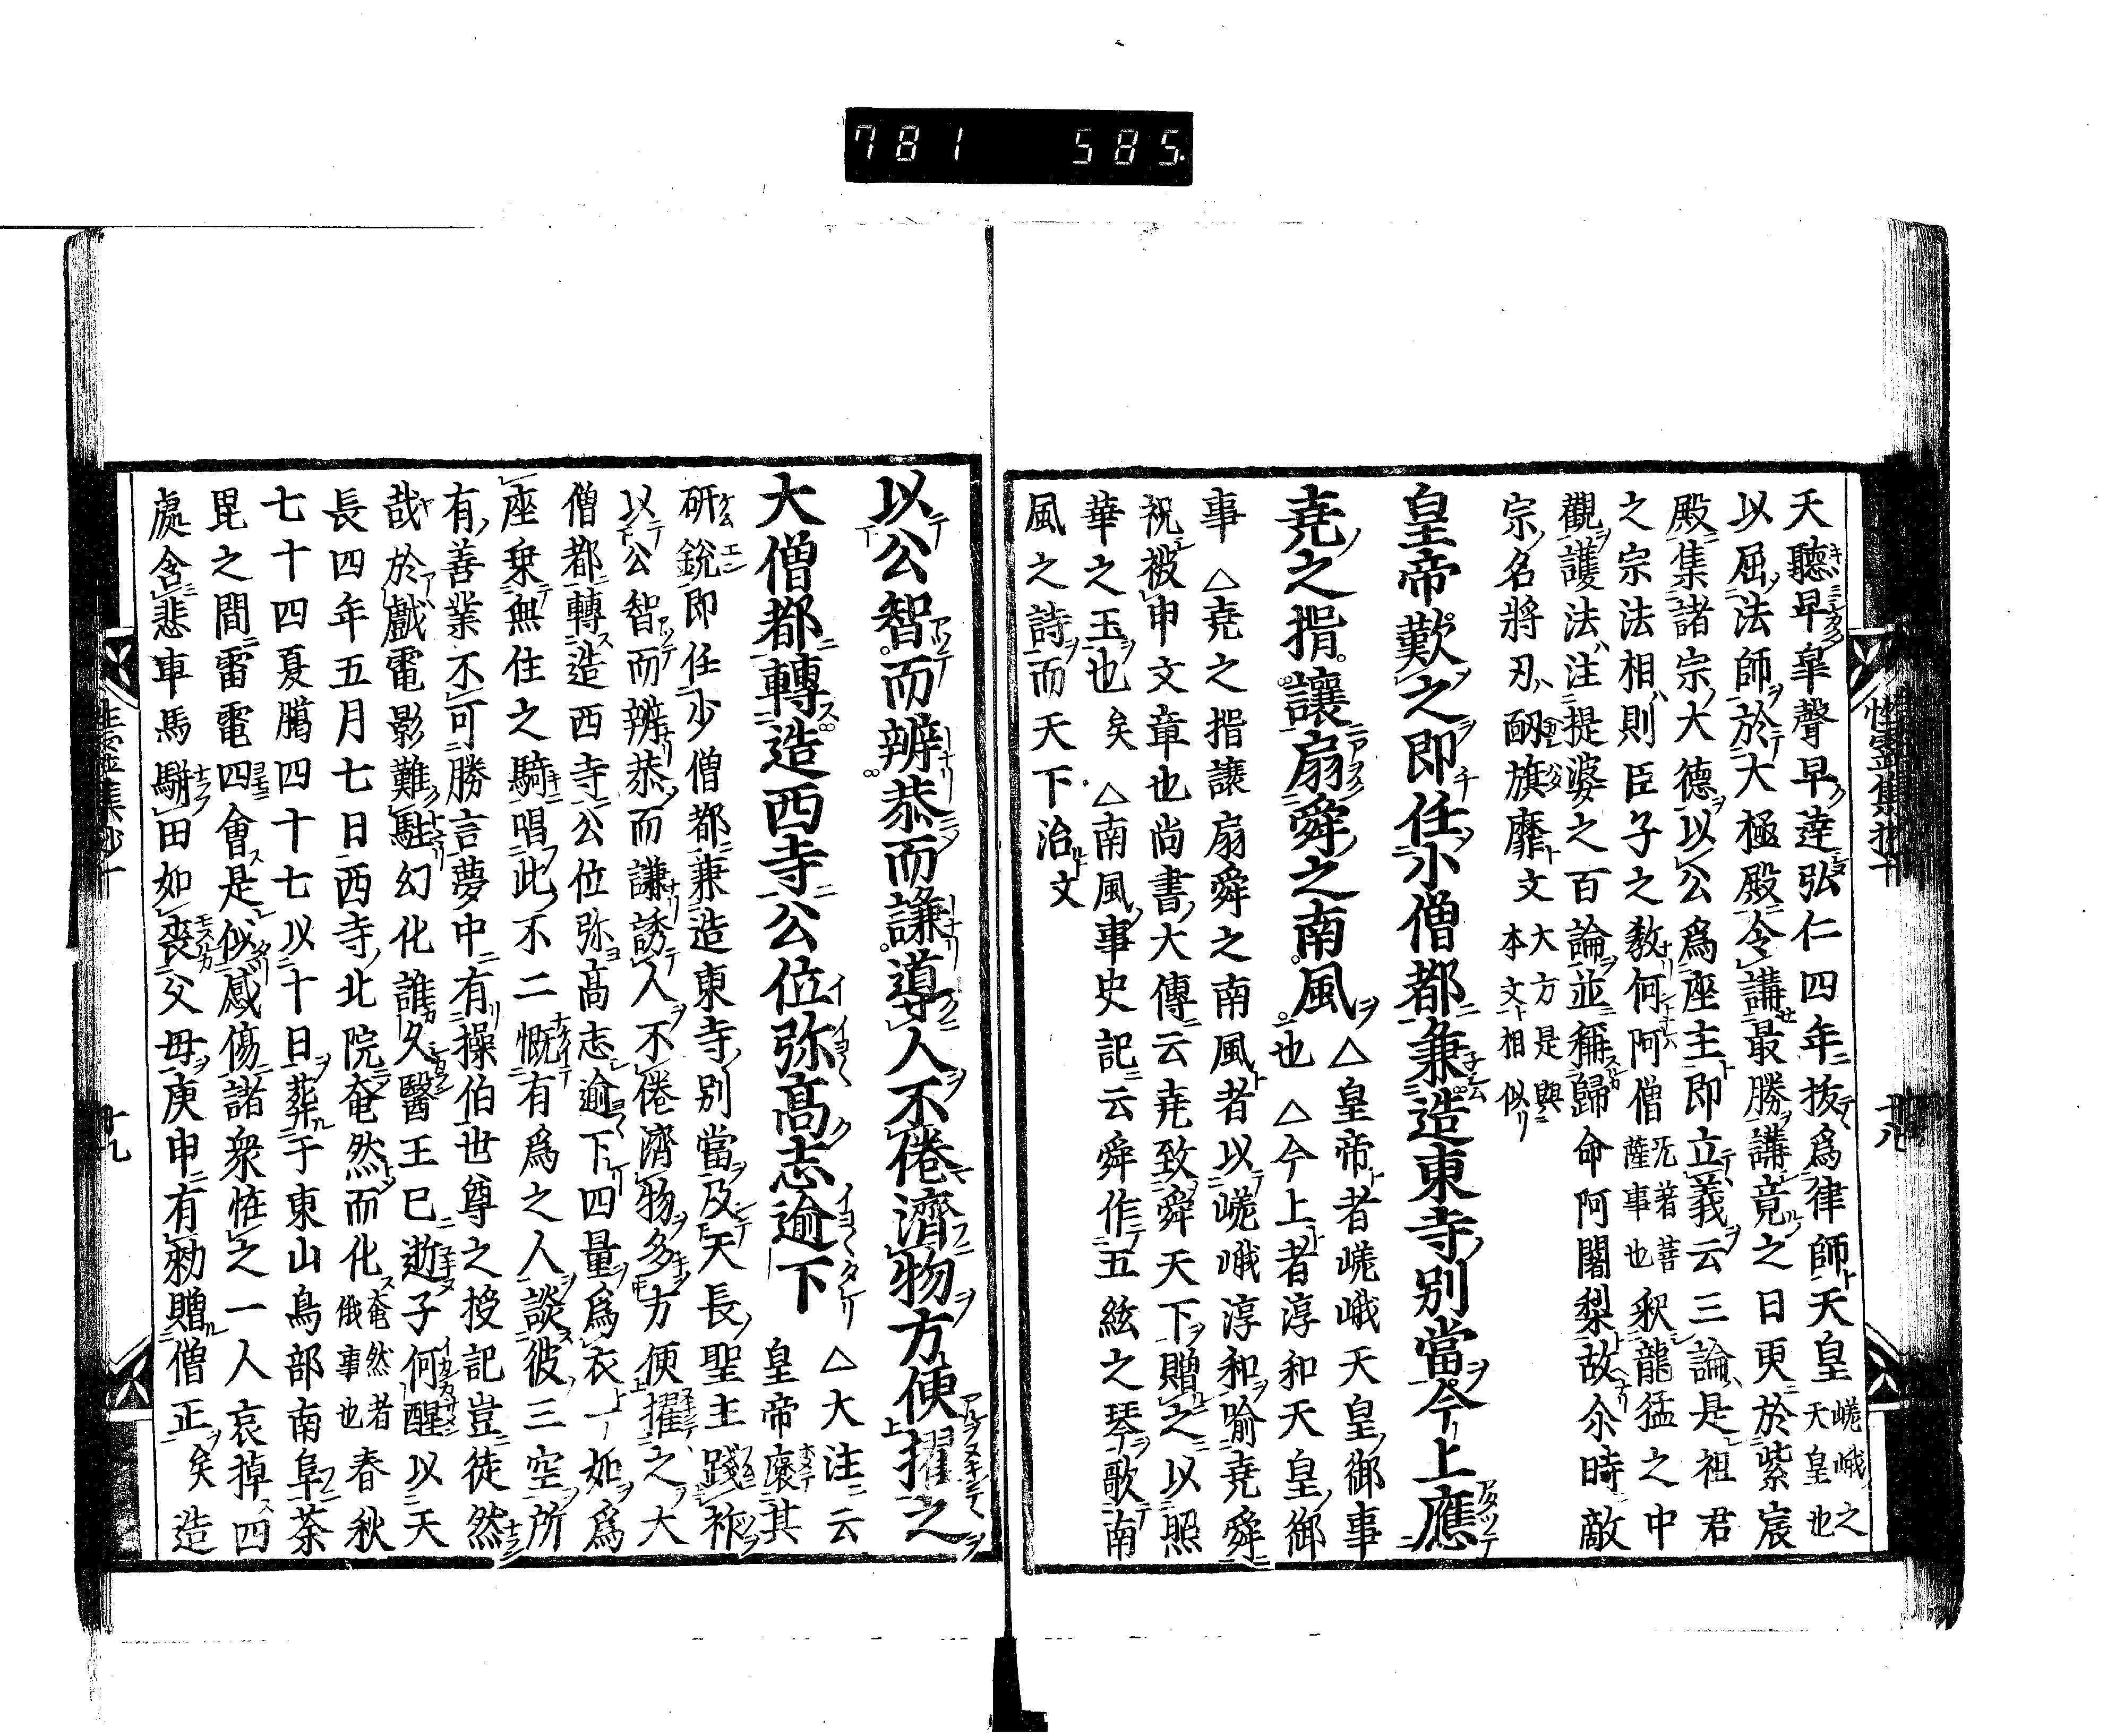 781 585
天聽早皐聲早達弘仁四年拔爲律師天皇嵯峨之天皇也
以屈法師於大極殿令講最勝講竟之日更於紫宸
殿集諸宗大德以公爲座主即立義云三論是祖君
之宗法相則臣子之敎何阿僧旡著菩薩事也釈龍猛之中
觀護法注提婆之百論並稱歸命阿闍梨故尒時敵
宗名將刃旗靡文大方是與本文相似
皇帝歎之即任小僧都兼造東寺別當今上應
堯之揖讓扇舜之南風△皇帝者嵯峨天皇御事
也△今上者淳和天皇御
事△堯之揖讓扇舜之南風者以嵯峨淳和喻堯舜
祝被申文章也尚書大傳云堯致舜天下贈之以照
華之玉也矣△南風事史記云舜作五絃之琴歌南
風之詩而天下治文
性霊集抄十
十八
以公智而辨恭而謙導人不倦濟物方便擢之
大僧都轉造西寺公位弥高志逾下△大注云
皇帝褒其
研銳即任少僧都兼造東寺別當及天長聖主踐祚
以公智而辨恭而謙誘人不倦濟物多方便擢之大
僧都轉造西寺公位弥高志逾下四量爲衣一如爲
座乗無住之騎唱此不二慨有爲之人談彼三空所
有善業不可勝言夢中有操伯世尊之授記豈徒然
哉於戲電影難駐幻化誰久醫王已逝子何醒以天
長四年五月七日西寺北院奄然而化奄然者俄事也春秋
七十四夏﨟四十七以十日葬于東山鳥部南阜荼
毘之間雷電四會是似感傷諸衆恠之一人哀掉四
處含悲車馬騈田如喪父母庚申有勑贈僧正矣造
十九